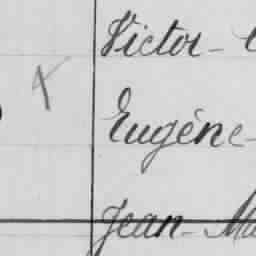 Victor-
Eugène-
Jean-Ma